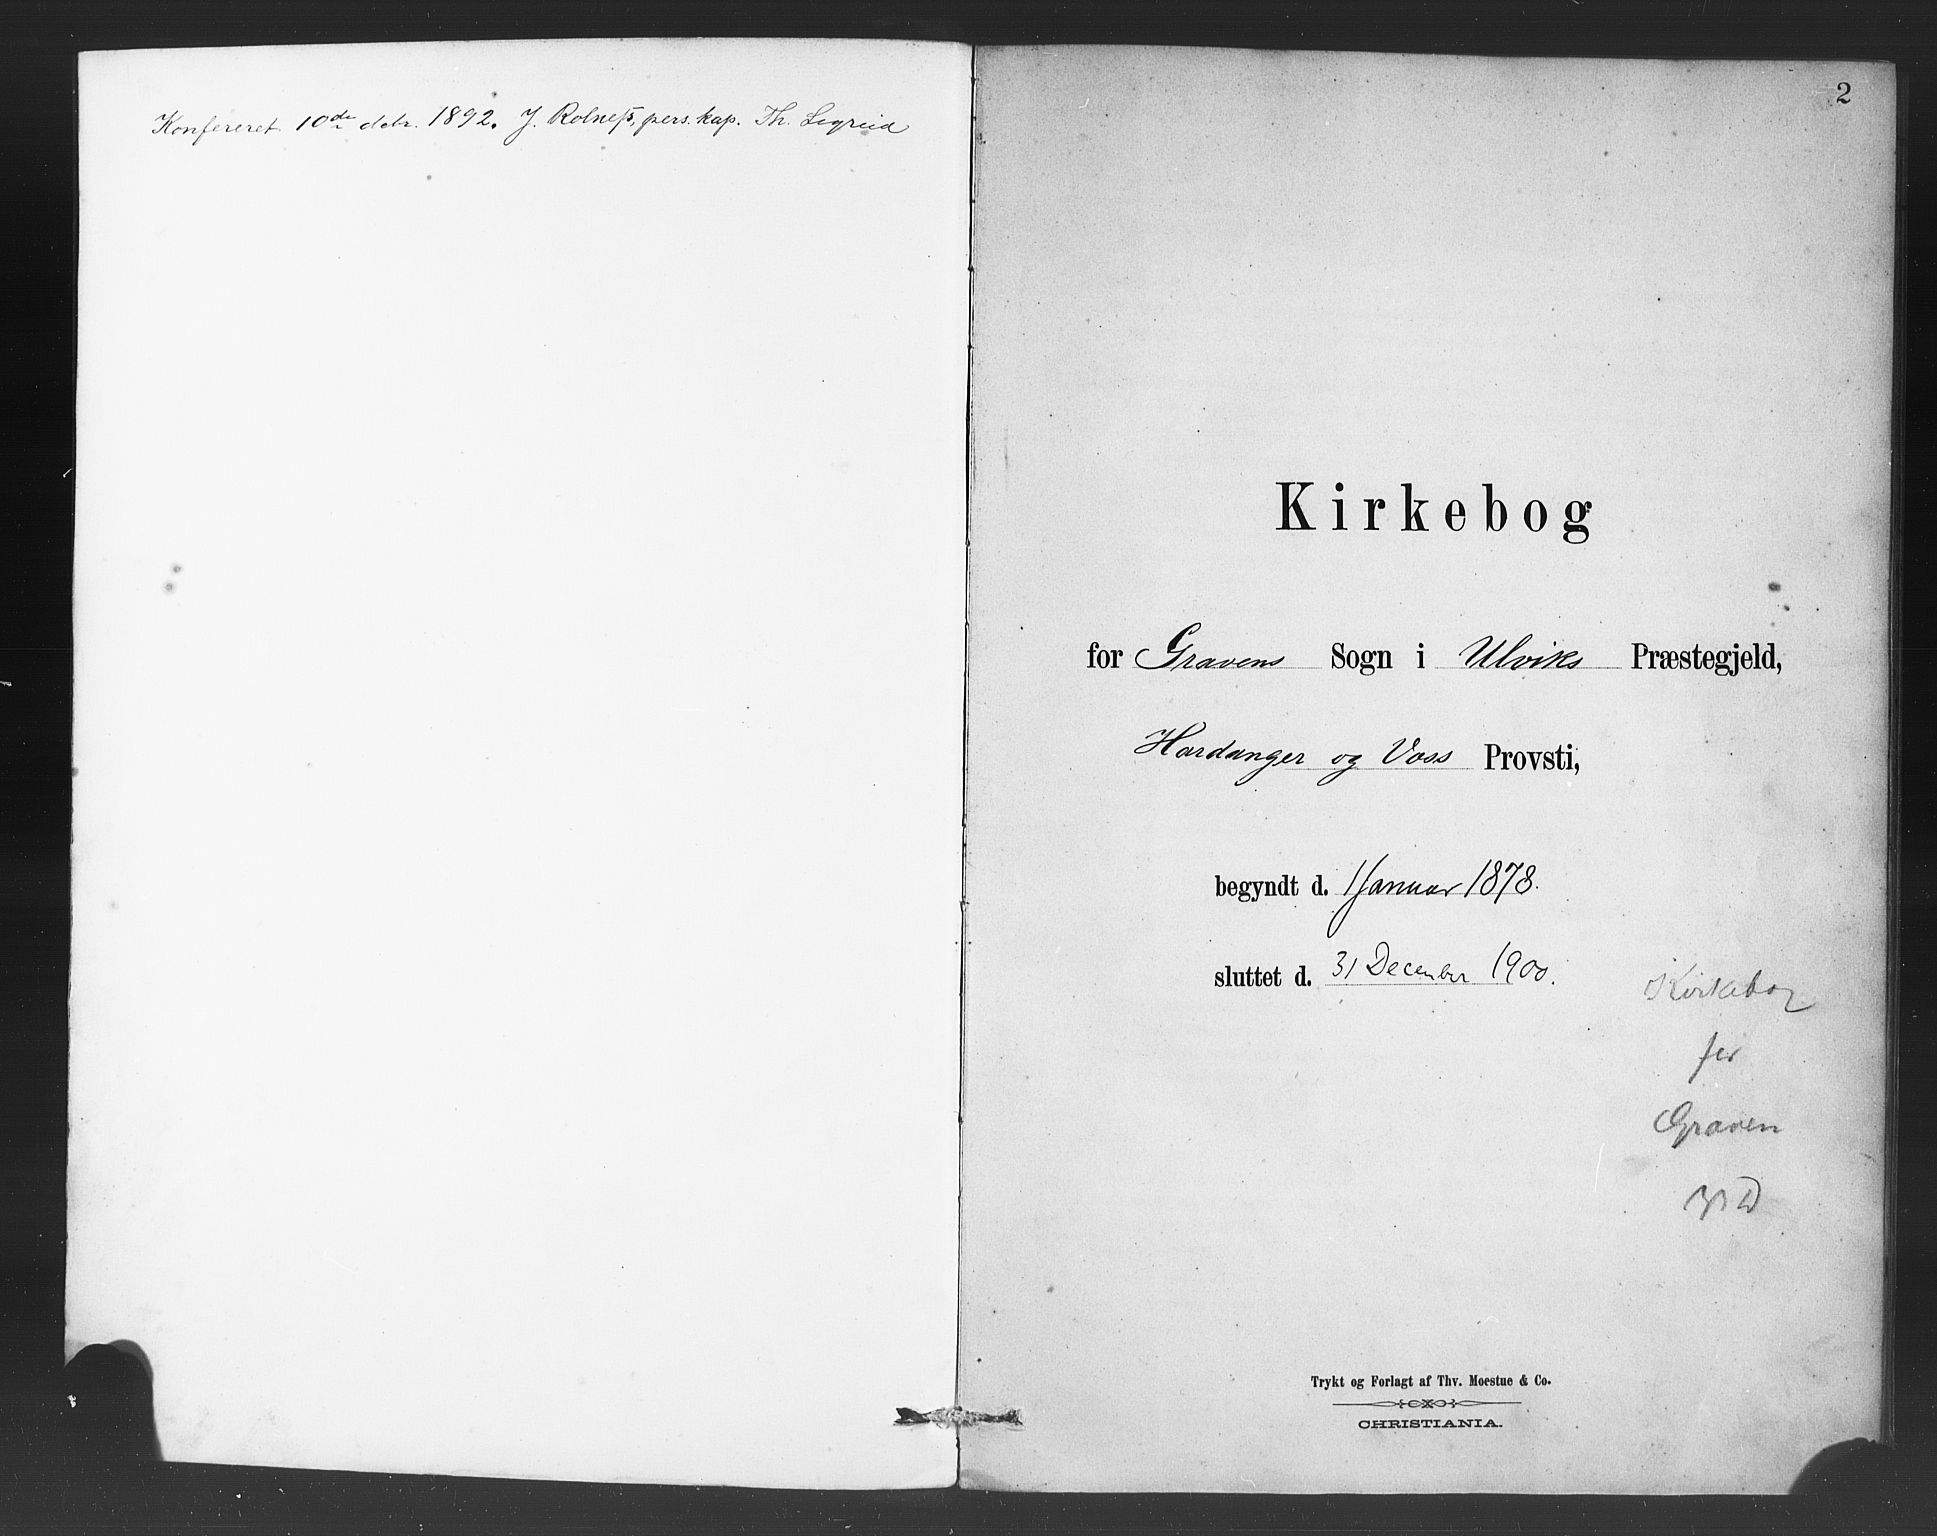 Konfereret 10de dcbr. 1892. J. Rolnes, pers. kap. Th. Legreid
2
Kirkebog
for Gravens Sogn i Ulviks Præstegjeld,
Hardanger og Voss Provsti,
begyndt d. 1 Januar 1878.
sluttet d. 31 December 1900.
Kirkebog
for
Graven
Trykt og Forlagt af Thv. Moestue & Co.
CHRISTIANIA.